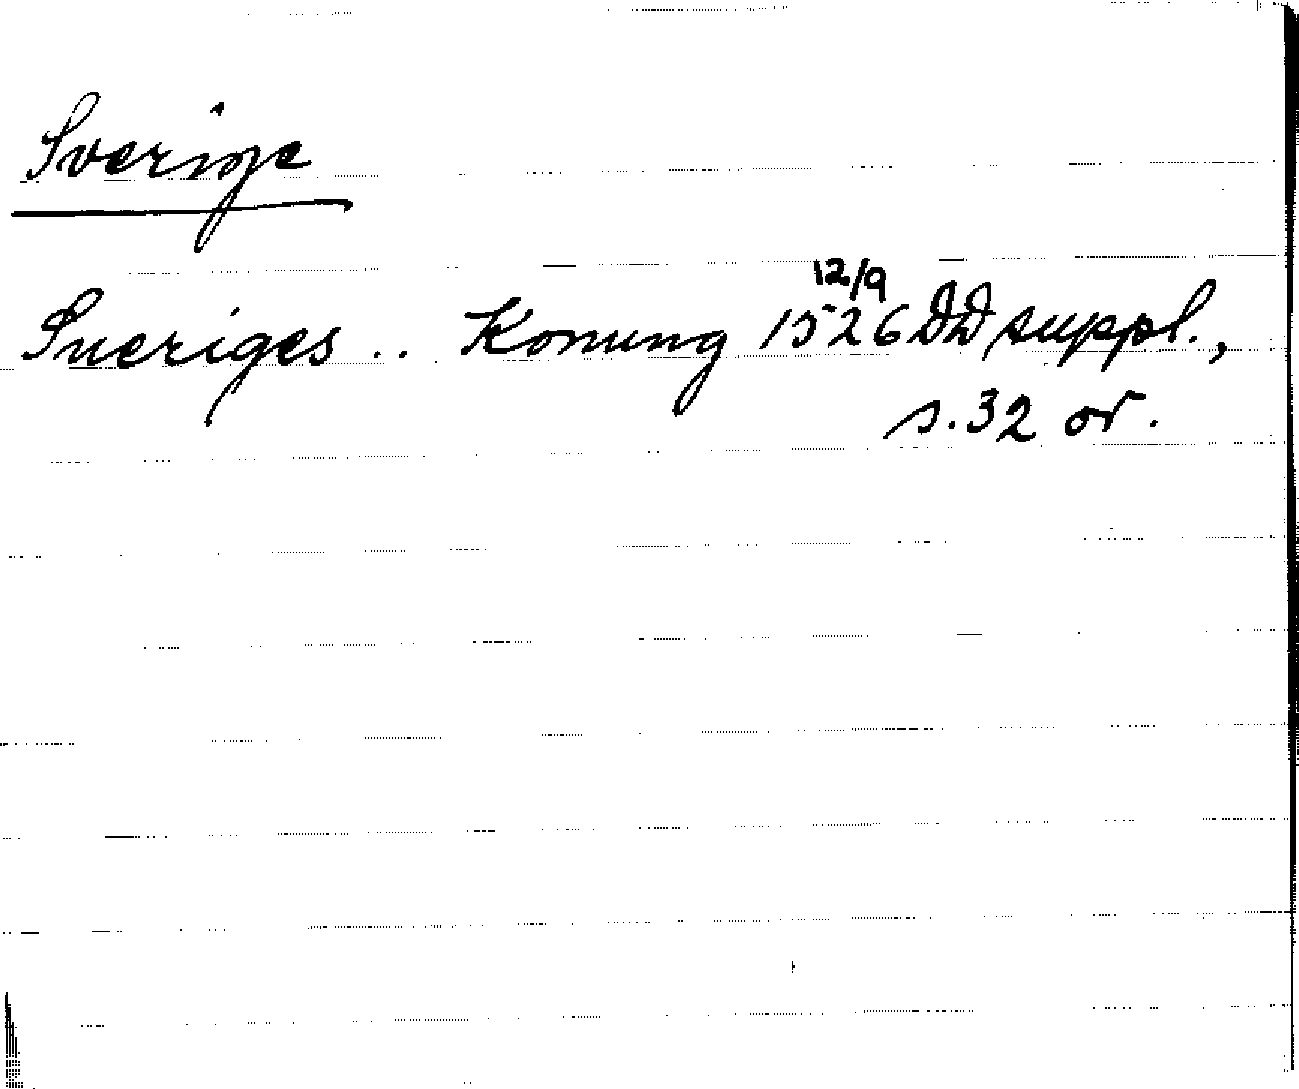 Sverige
Sveriges .. Konung 12/9 1526 DD suppl.,
s. 32 or.